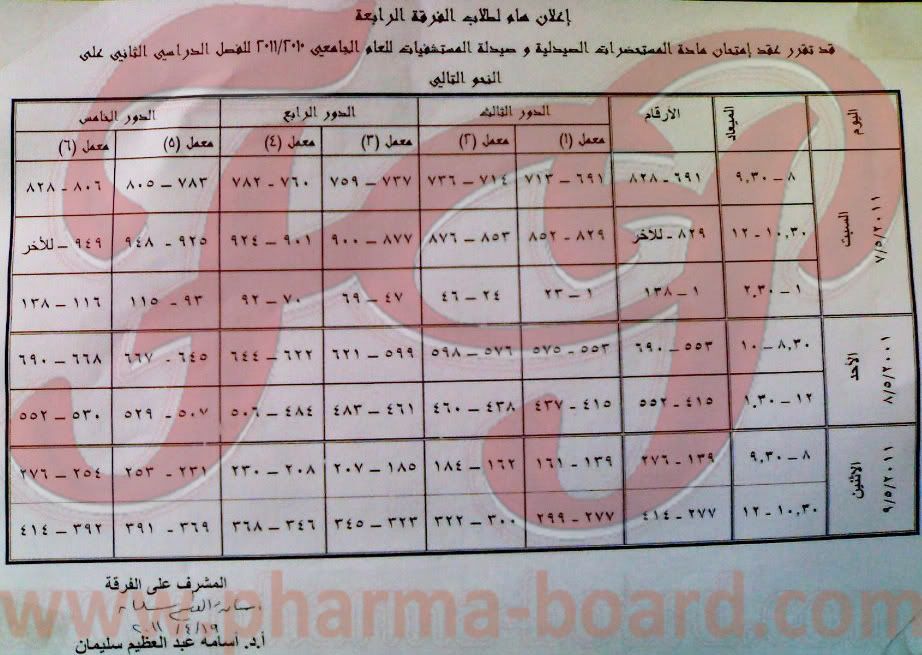 إعلان هام لطلاب الفرقة الرابعة
قد تقرر عقد إمتحان مادة المستحضرات الصيدلية و صيدلة المستشفيات للعام الجامعى ٢٠١١/٢٠١٠ للفصل الدراسي الثاني على
النحو التالي
اليوم الميعاد الأرقام الدور الثالث الدور الرابع الدور الخامس
معمل (١) معمل (٢) معمل (٣) معمل (٤) معمل (٥) معمل (٦)
السبت ٧/٥/٢٠١١
٨ – ٩,٣٠ ٦٩١ – ٨٢٨ ٦٩١ – ٧١٣ ٧١٤ – ٧٣٦ ٧٣٧ – ٧٥٩ ٧٦٠ – ٧٨٢ ٧٨٣ – ٨٠٥ ٨٠٦ - ٨٢٨
١٠,٣٠ – ١٢ ٨٢٩ - للأخر ٨٢٩ – ٨٥٢ ٨٥٣ – ٨٧٦ ٨٧٧ – ٩٠٠ ٩٠١ – ٩٢٤ ٩٢٥ – ٩٤٨ ٩٤٩ – للأخر
١ – ٢,٣٠ ١ – ١٣٨ ١ – ٢٣ ٢٤ – ٤٦ ٤٧ – ٦٩ ٧٠ – ٩٢ ٩٣ – ١١٥ ١١٦ – ١٣٨
الأحد ٨/٥/٢٠٠١
٨,٣٠ – ١٠ ٥٥٣ – ٦٩٠ ٥٥٣ – ٥٧٥ ٥٧٦ – ٥٩٨ ٥٩٩ – ٦٢١ ٦٢٢ – ٦٤٤ ٦٤٥ – ٦٦٧ ٦٦٨ – ٦٩٠
١٢ – ١,٣٠ ٤١٥ – ٥٥٢ ٤١٥ – ٤٣٧ ٤٣٨ – ٤٦٠ ٤٦١ – ٤٨٣ ٤٨٤ – ٥٠٦ ٥٠٧ – ٥٢٩ ٥٣٠ – ٥٥٢
الاثنين ٩/٥/٢٠١١
٨ – ٩,٣٠ ١٣٩ – ٢٧٦ ١٣٩ – ١٦١ ١٦٢ – ١٨٤ ١٨٥ – ٢٠٧ ٢٠٨ – ٢٣٠ ٢٣١ – ٢٥٣ ٢٥٤ – ٢٧٦
١٠,٣٠ – ١٢ ٢٧٧ – ٤١٤ ٢٧٧ – ٢٩٩ ٣٠٠ – ٣٢٢ ٣٢٣ – ٣٤٥ ٣٤٦ – ٣٦٨ ٣٦٩ – ٣٩١ ٣٩٢ – ٤١٤
المشرف على الفرقة
٢٠١١/٤/١٩
أ.د. أسامه عبد العظيم سليمان
www.pharma-board.com